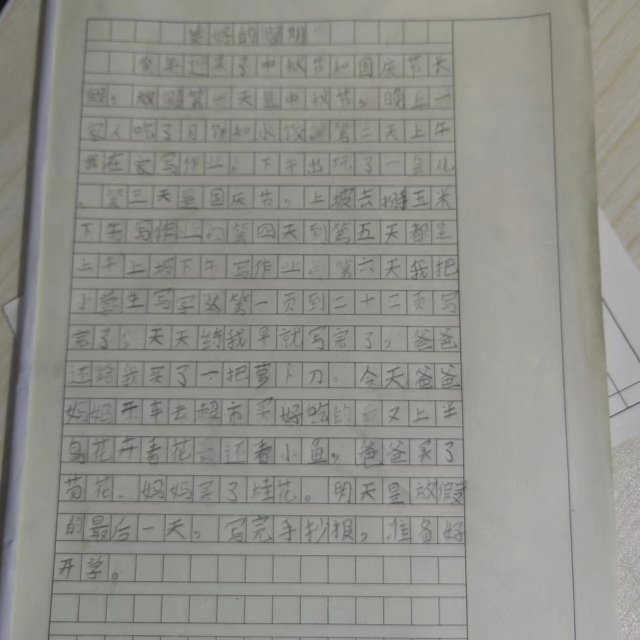 的假期
今年迎来了中秋节和国庆节天
假。放假第一天是中秋节。晚上一
家人吃了月饼和水饺。第二天上午
我在家写作业。下午出玩了一会儿
。第三天是国庆节。上坡去掰玉米
下午写作业。第四天到第五天都是
上午上坡下午写作业。第六天我把
小学生写字从第一页到二十二页写
完了。天天给我早就写完了。爸爸
还给我买了一把萝卜刀。今天爸爸
妈妈开车去超市买好吃的。又上半
岛花卉看花。还看小鱼。爸爸买了
菊花、妈妈买了桂花。明天是放假
的最后一天。写完手抄报。准备好
开学。